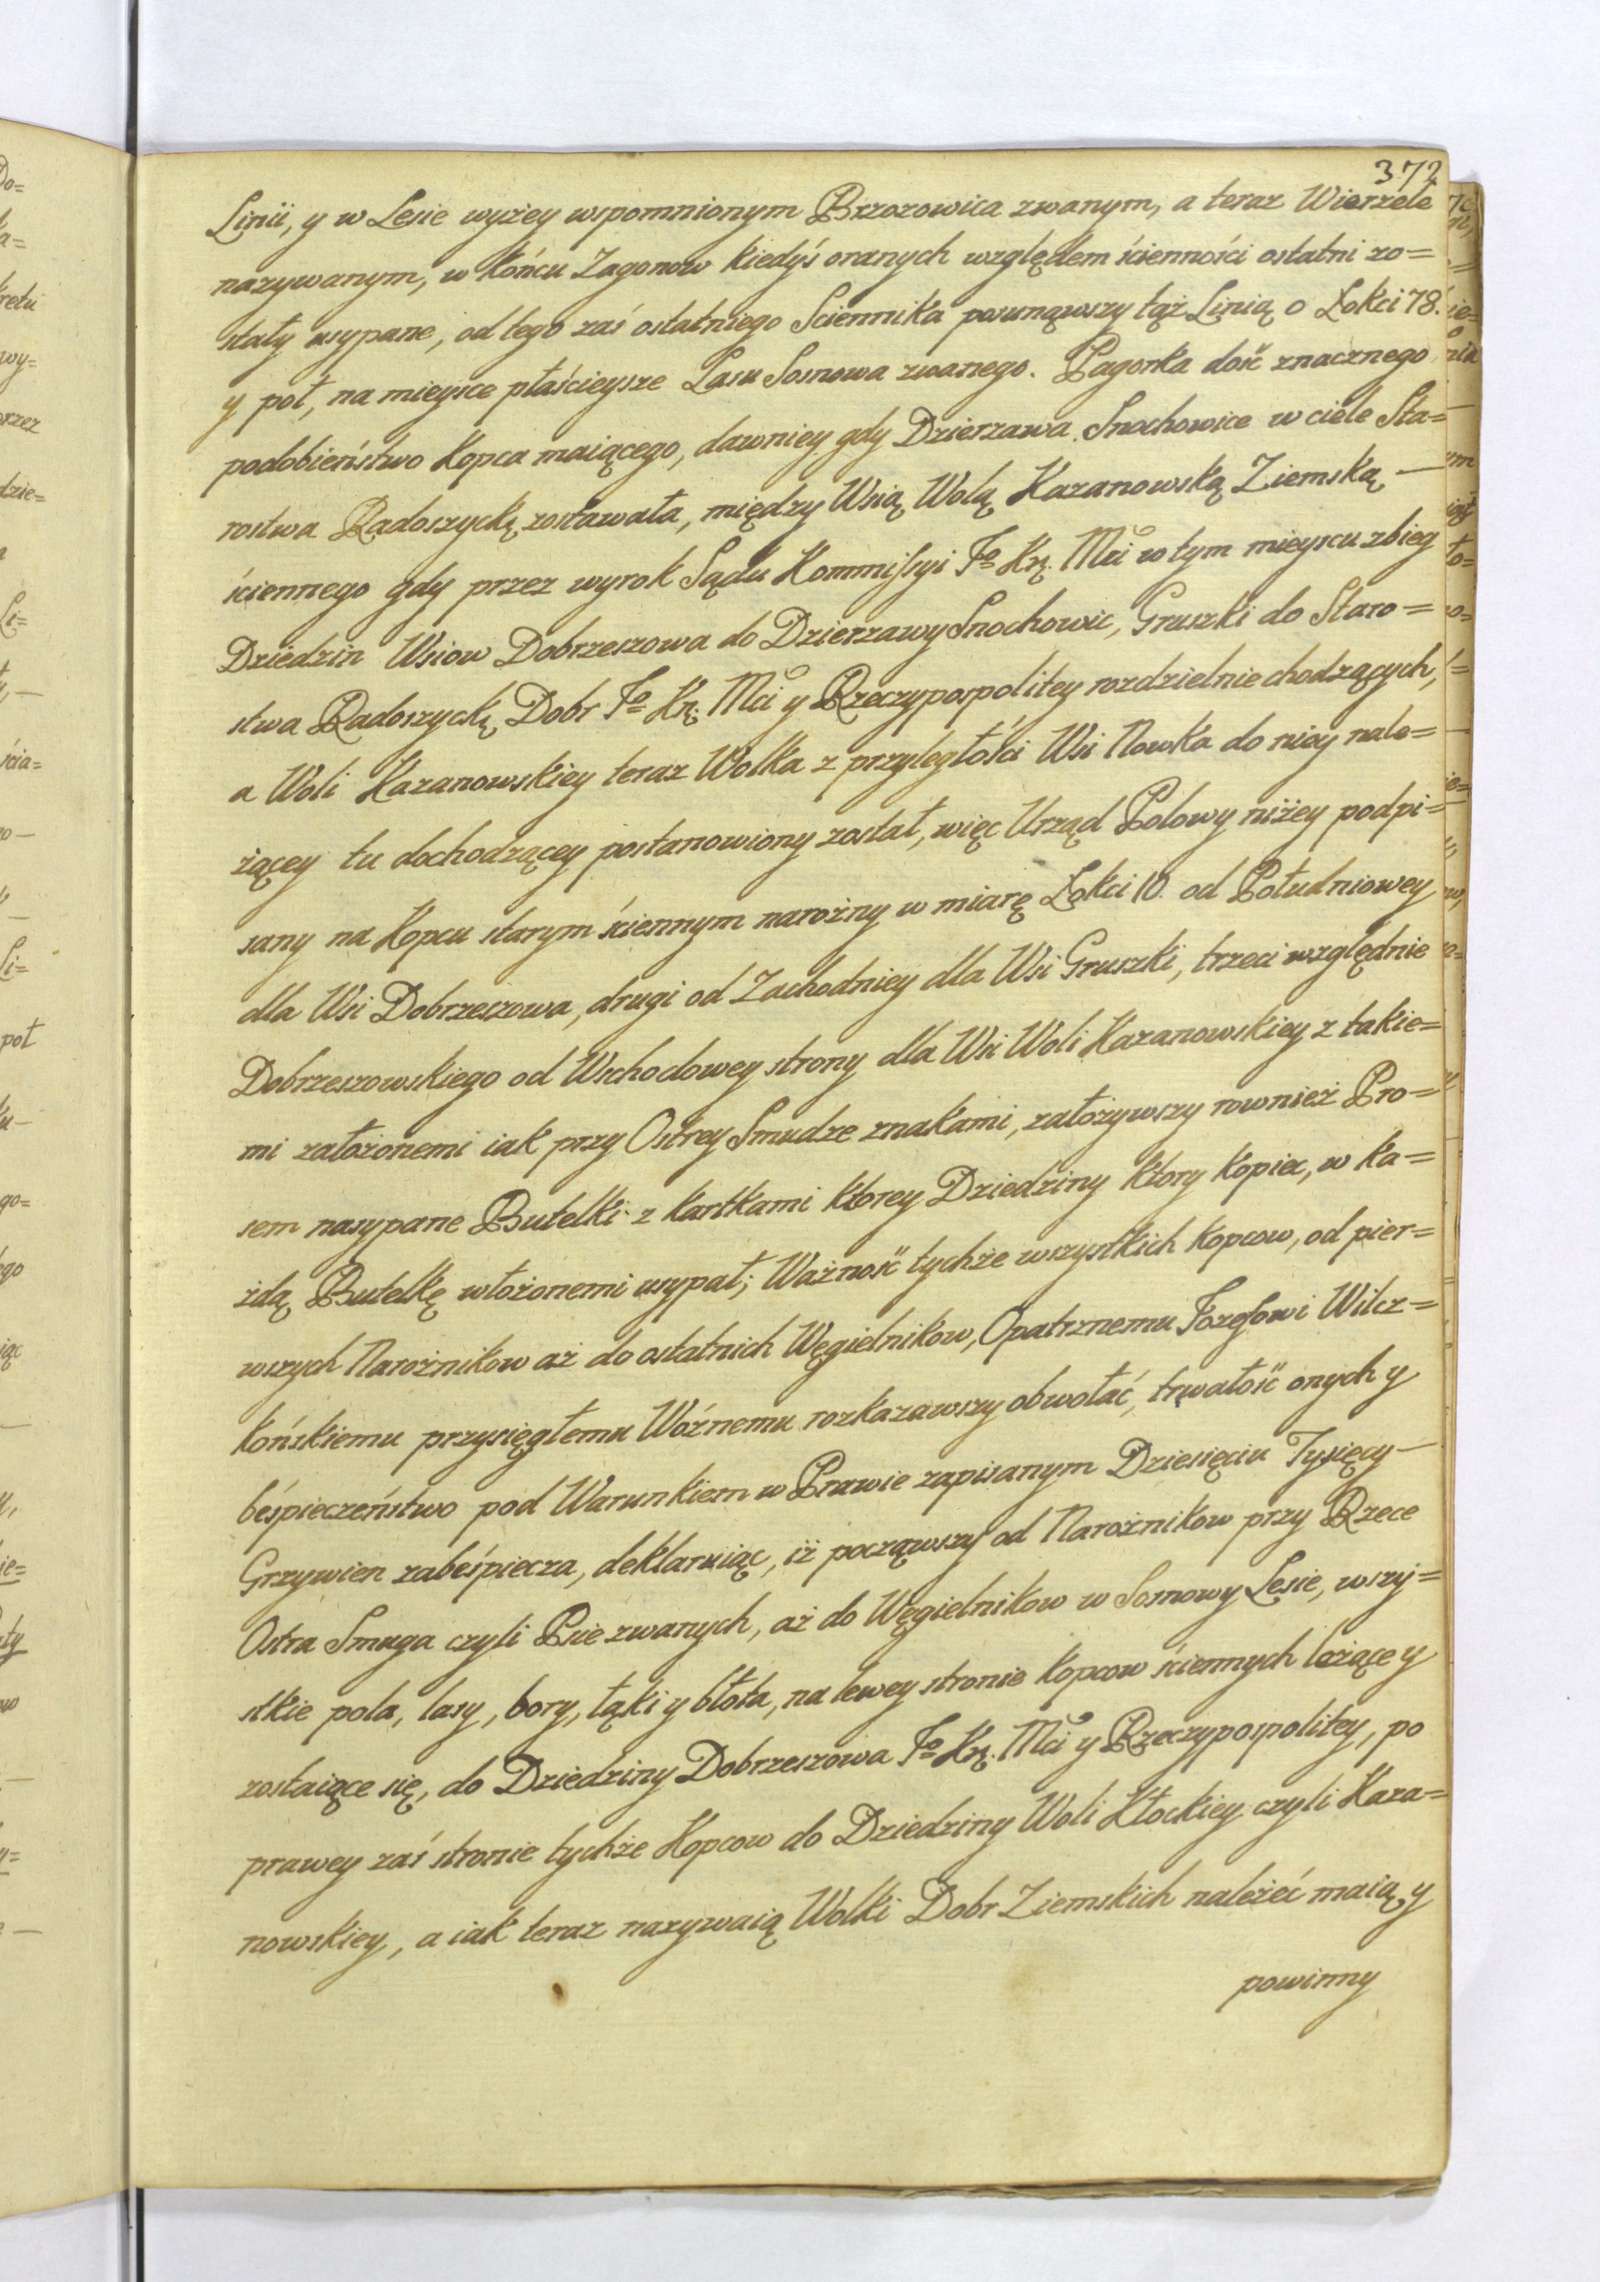 372
Linii, y w Lesie wyżey wspomnionym Brzozowica zwanym, a teraz Wierzete
nazywanym, w końcu Zagonow kiedyś oranych względem ścienności ostatni zo=
stały usypane, od tego zaś ostatniego Sciennika posunąwszy tąż Linią o Łokci 78.
y poł, na mieysce płaścieysze Lasu Sosnowa zwanego. Pagorka dość znacznego
podobieństwo Kopca maiącego, dawniey gdy Dzierzawa Snochowice w ciele Sta=
rostwa Radoszycką zostawała, między Wsią Wolą Kazanowską Ziemską —
ściennego gdy przez wyrok Sądu Kommissyi Jo Kr. Mci w tym mieyscu zbieg
Dziedzin Wsiow Dobrzeszowa do Dzierzawy Snochowic, Gruszki do Staro=
stwa Radoszycką Dobr Jo Kr. Mci y Rzeczypospolitey rozdzielnie chodzących,
a Woli Kazanowskiey teraz Wolka z przyległości Wsi Nowka do niey nale=
żącey tu dochodzącey postanowiony został, więc Urząd Polowy niżey podpi=
sany na Kopcu starym ściennym narożny w miarę Łokci 10. od Południowey
dla Wsi Dobrzeszowa, drugi od Zachodniey dla Wsi Gruszki, trzeci względnie
Dobrzeszowskiego od Wschodowey strony dla Wsi Woli Kazanowskiey z takie=
mi założonemi iak przy Ostrey Smudze znakami, założywszy rownież Pro=
sem nasypane Butelki z kartkami ktorey Dziedziny ktory kopiec, w ka=
żdą Butelkę włożonemi usypał; Ważność tychże wszystkich kopcow, od pier=
wszych Narożnikow aż do ostatnich Węgielnikow, Opatrznemu Jozefowi Wilcz=
końskiemu przysięgłemu Woźnemu rozkazawszy obwołać, trwałość onych y
beśpieczeństwo pod Warunkiem w Prawie zapisanym Dziesięciu Tysięcy —
Grzywien zabeśpiecza, deklaruiąc, iż począwszy od Narożnikow przy Rzece
Ostra Smuga czyli Psie zwanych, aż do Węgielnikow w Sosnowy Lesie, wszy=
stkie pola, lasy, bory, łąki y błota, na lewey stronie kopcow ściennych leżące y
zostaiące się, do Dziedziny Dobrzeszowa Jo Kr. Mci y Rzeczypospolitey, po
prawey zaś stronie tychże Kopcow do Dziedziny Woli Kłockiey czyli Kaza=
nowskiey, a iak teraz nazywaią Wolki Dobr Ziemskich należeć maią, y
powinny